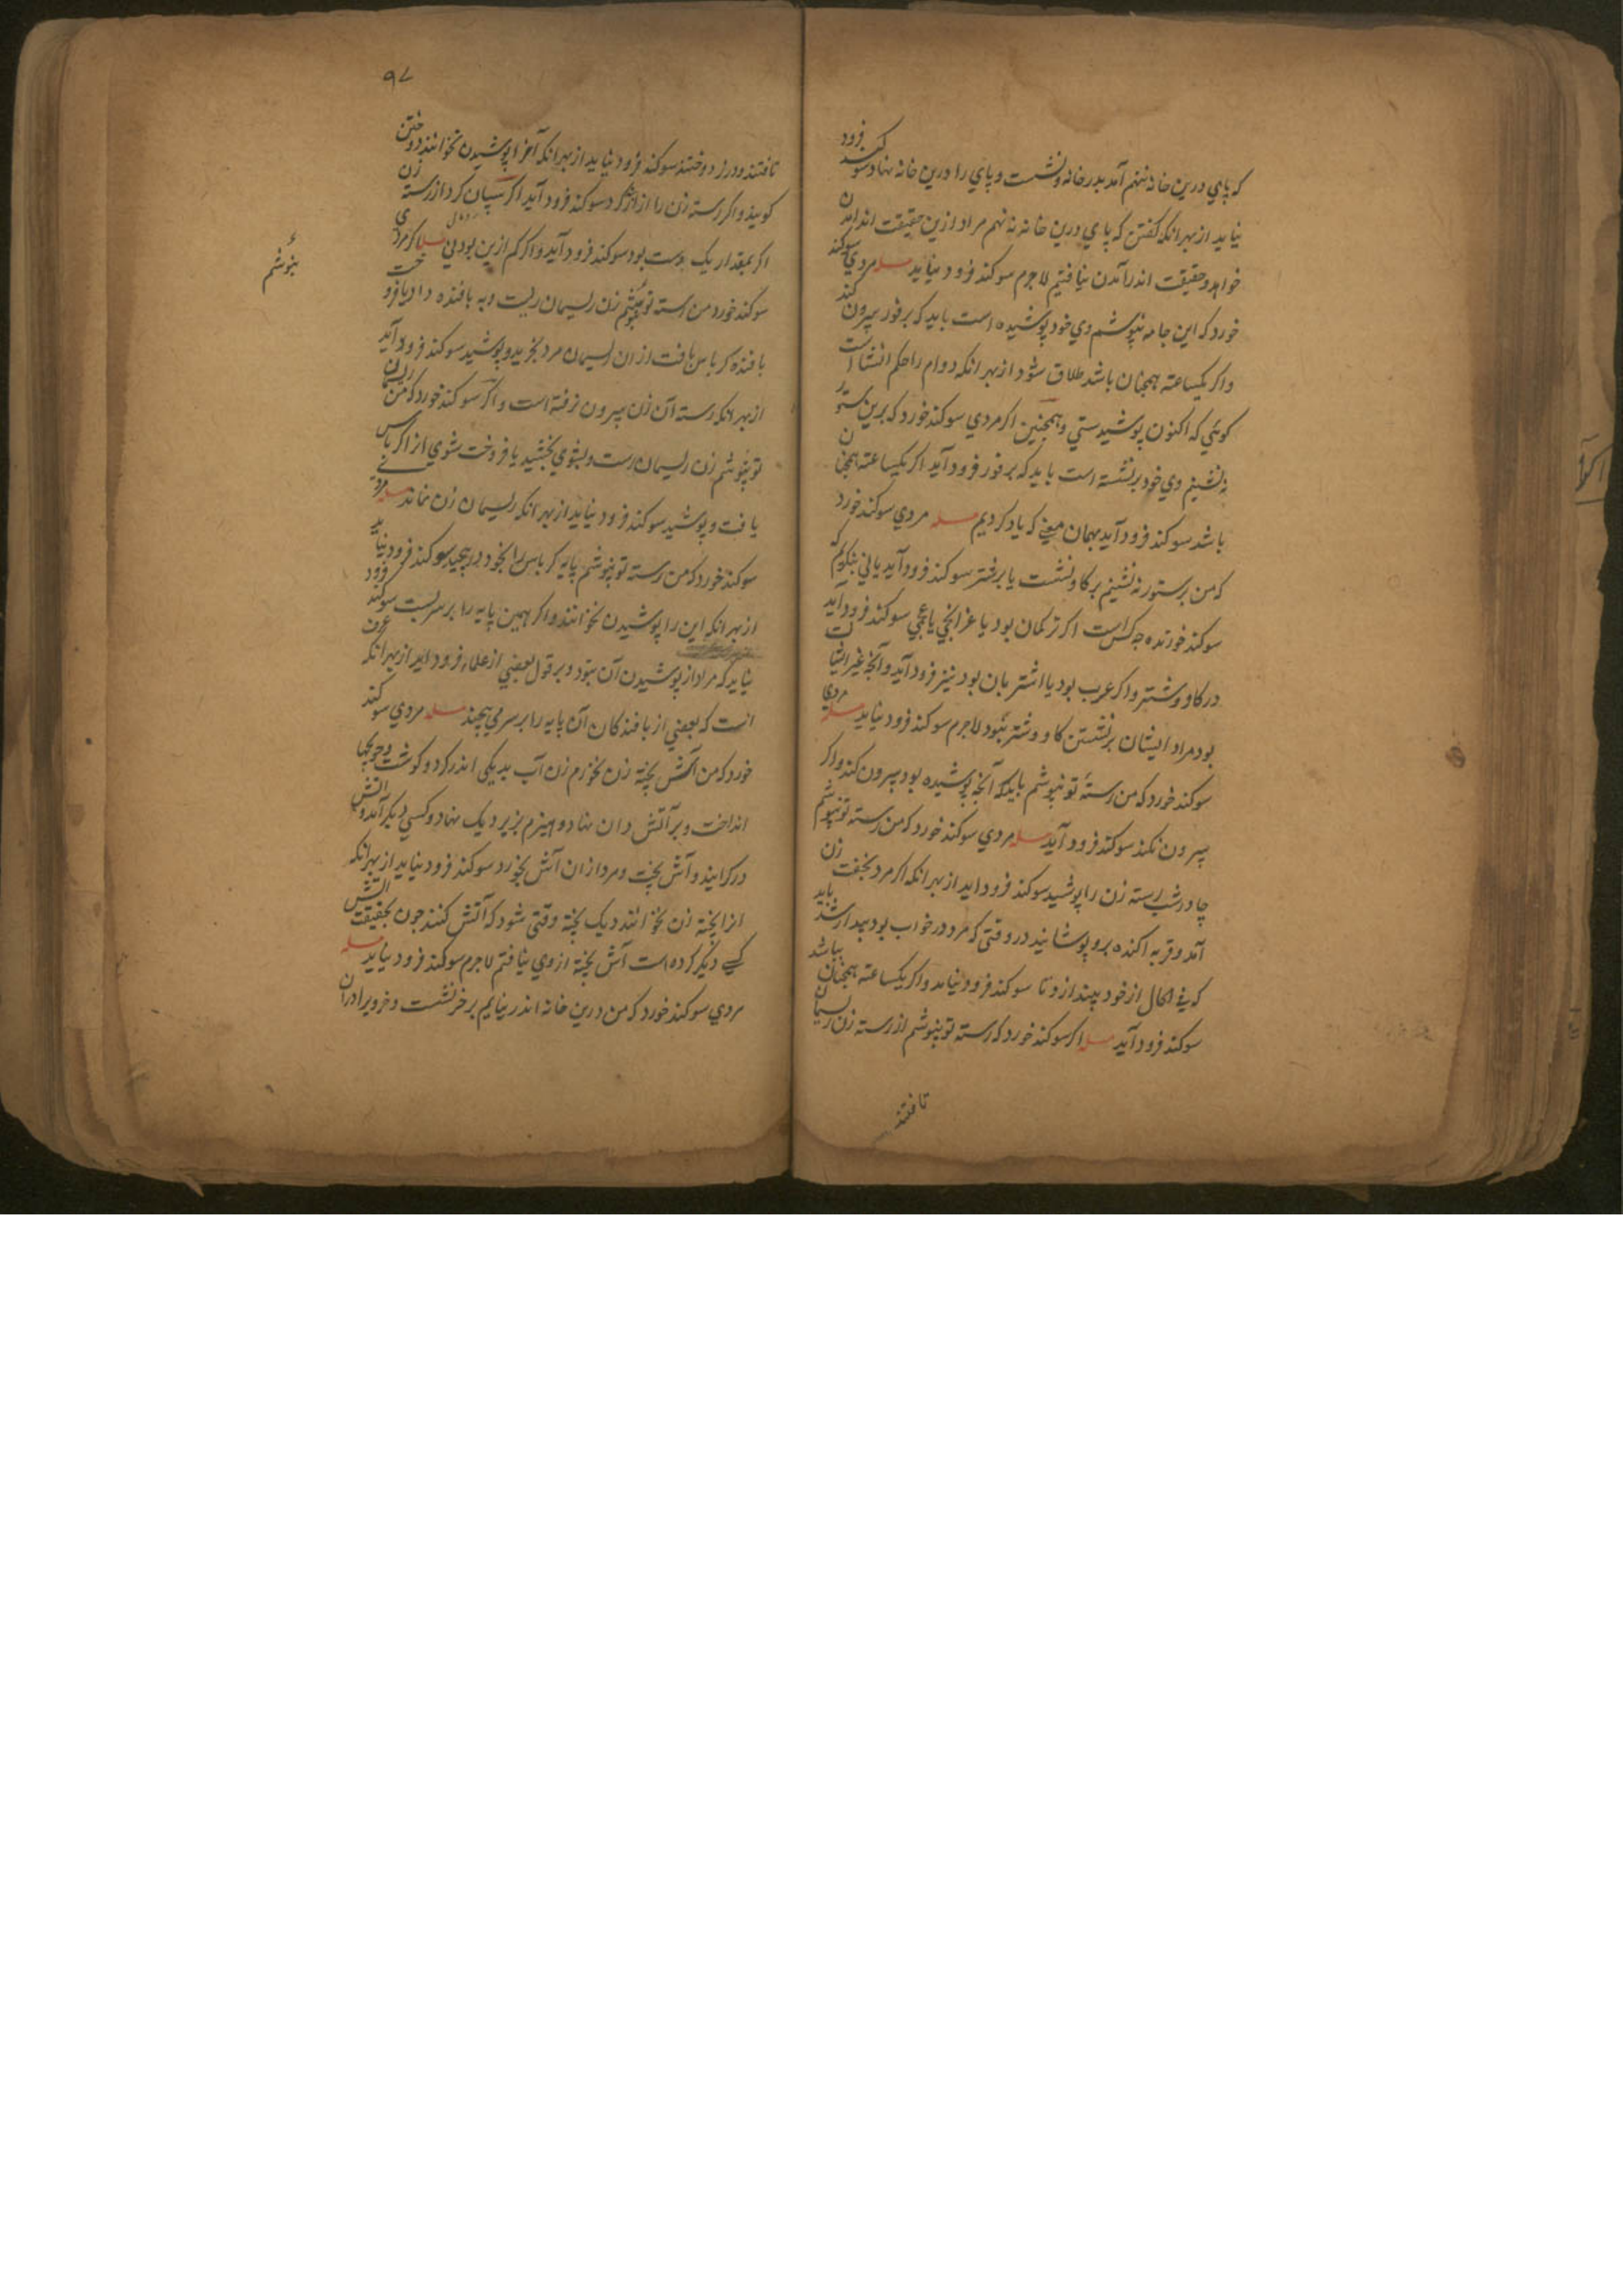 که پاي درين خانه ننهم آمد بدر خانه و نشست و پاي را درين خانه نهاد سوکند فرود
نیاید از بهر انکه کفتن که پاي درين خانه نانهم مراد ازین حقیقت اندرامدن
خواهد و حقیقت اندرآمدن نیافتیم لاجرم سوکند فرود نیاید مسله مردي سوکند
خورد که این جامه نپوشم وي خود پوشیده است باید که بر فور بیرون کند
واکر یکساعته همچنان باشد طلاق شود از بهر انکه دوام را حکم انشا است
کوئي که اکنون پوشیدستي وهمچنین اکر مردي سوکند خورد که برین ستور
نه نشینم وي خود برنشسته است باید که بر فور فرود آید اکر یکساعته همچنان
باشد سوکند فرود آید بهمان معني که یاد کردیم مسله مردي سوکند خورد
که من برستور نه نشینم بر کاو نشست یا بر شتر سوکند فرود آید یا ني بنکریم که
سوکند خورنده چه کس است اکر ترکمان بود یا عجمي سوکند فرود آید
در کاو وشتر واکر عرب بود یا اشتربان بود نیز فرود آید وآنچه غیر ایشان
بود مراد ایشان برنشستن کاو وشتر نبود لاجرم سوکند فرود نیاید مسله مردي
سوکند خورد که من رستهٔ تو نپوشم باید که آنچه پوشیده بود بیرون کند واکر
بیرون نکند سوکند فرود آید مسله مردي سوکند خورد که من رسته تو نپوشم
چادرشب رسته زن را پوشید سوکند فرود اید از بهر انکه اکر مرد بخفت زن
آمد و برو پوشانید در وقتی که مرد در خواب بود بیدار شد باید
که في الحال از خود بیندازد تا سوکند فرود نیامد واکر یکساعته همچنان بباشد
سوکند فرود آید مسله اکر سوکند خورد که رسته تو نپوشم از رسته زن ریسمان
تافتند
۹۷
تافتند ودرز دوختند سوکند فرود نیاید از بهر انکه آنرا پوشیدن نخوانند دوختن
کویند واکر رسته زن را ازار کرد سوکند فرود آید اکر کرد از رسته زن
اکر بمقدار یک دست بود سوکند فرود آید واکر کم ازین بود ني مسله اکر مردي
سوکند خورد من رسته تو نپوشم زن ریسمان رشت و به بافنده داد یا فروخت
بافنده کرباس بافت از ان ریسمان مرد بخرید و پوشید سوکند فرود آید
از بهر انکه رسته آن زن بیرون نرفته است واکر سوکند خورد که من ریسمان
تو نپوشم زن ریسمان رشت و بشوي بخشید یا فروخت شوي انرا کرباس
بافت و پوشید سوکند فرود نیاید از بهر انکه ریسمان زن نماند مسله مردي
سوکند خورد که من رسته تو نپوشم پایه کرباس را بخود در پیچید سوکند فرود نیاید
از بهر انکه این را پوشیدن نخوانند واکر همین پایه را بر سر بست سوکند فرود
نیاید که مراد از پوشیدن آن نبود و بر قول بعضي از علماء فرود اید از بهر انکه عرف
انست که بعضي از بافندکان آن پایه را بر سر مي پیچند مسله مردي سوکند
خورد که من آش پخته زن نخورم زن آب بدیکی اندر کرد و کوشت و
انداخت و بر آتش دان نهاد و هیزم بزیر دیک نهاد و کسي دیکر آمد و آتش
درکرانید و آش پخت و مرد ازان آش بخورد سوکند فرود نیاید از بهر انکه
انرا پخته زن نخوانند دیک پخته وقتی شود که آتش کنند چون بحقیقت آتش
کسے دیکر کرده است آش پخته از وي نیافتم لاجرم سوکند فرود نیاید مسله
مردي سوکند خورد که من درین خانه اندر نیایم بر خر نشست و خر ویرا دران
نپوشم